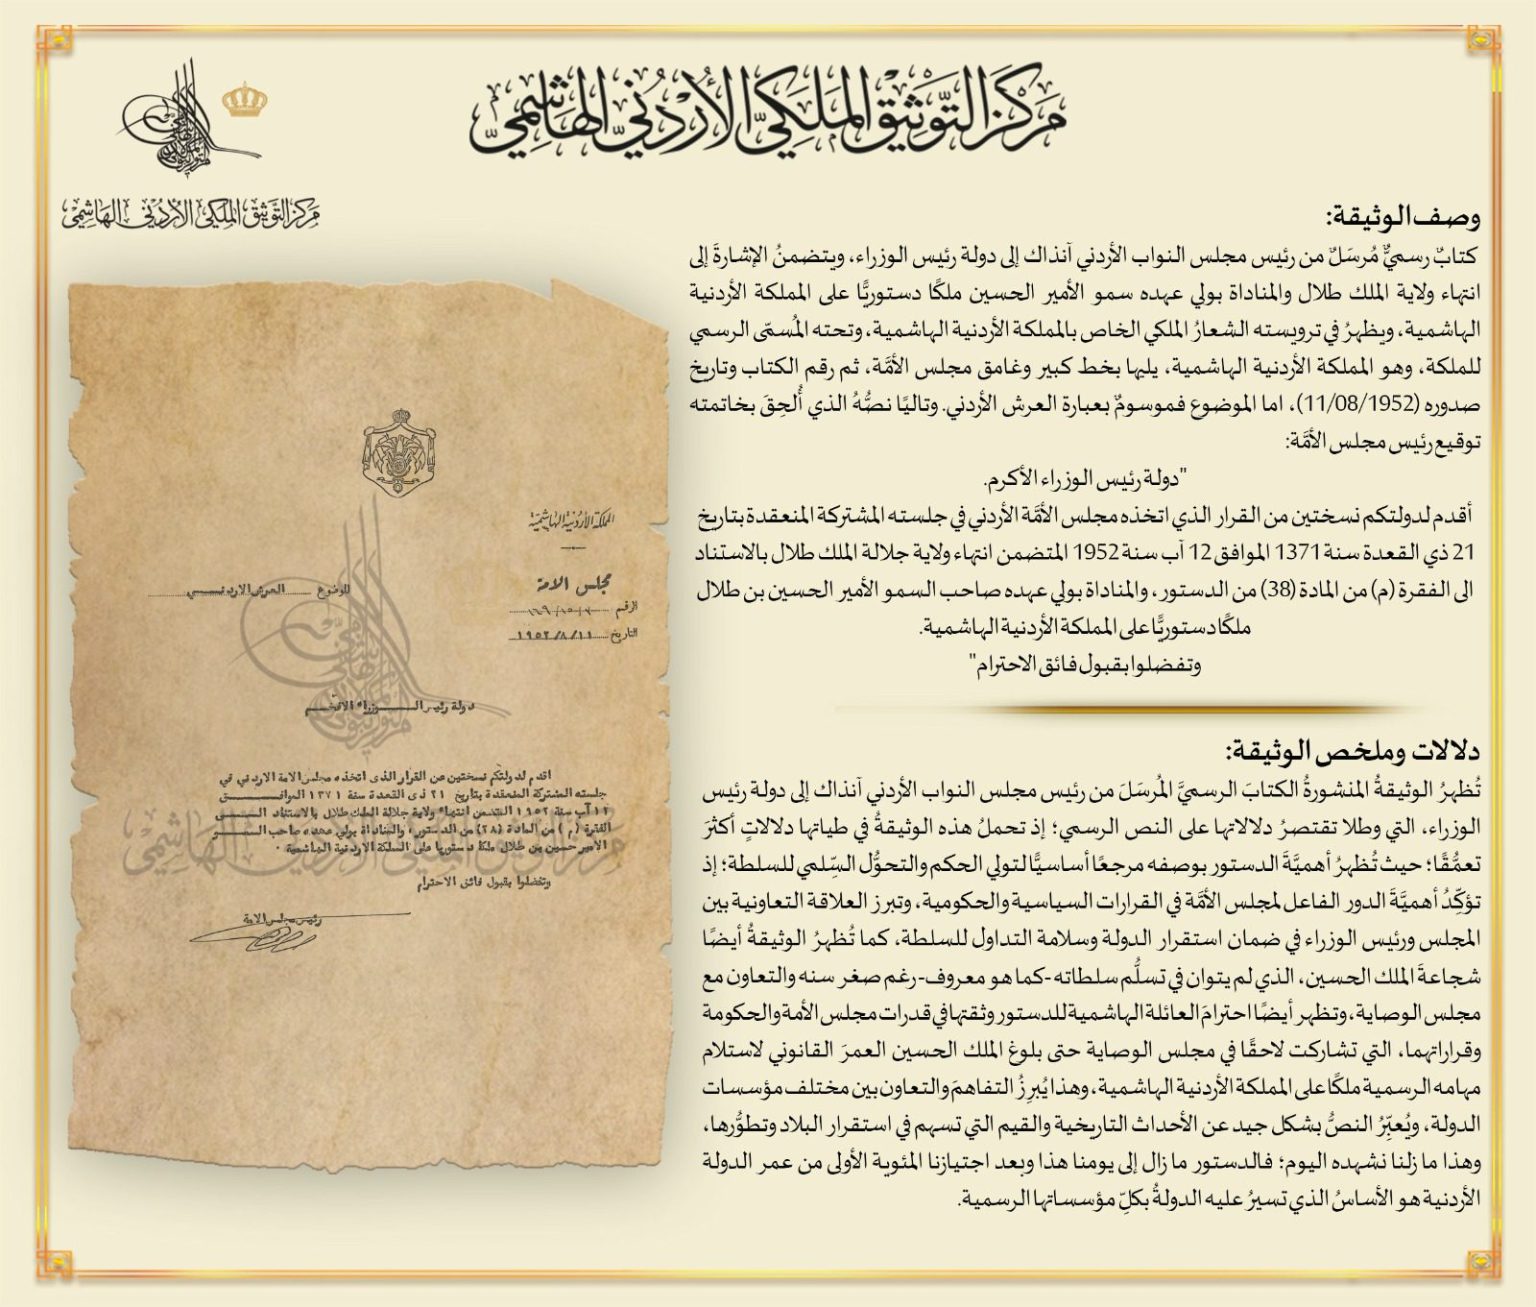 مركز التوثيق الملكي الأردني الهاشمي
مركز التوثيق الملكي الأردني الهاشمي
وصف الوثيقة:
كتابٌ رسميٌّ مُرسَلٌ من رئيس مجلس النواب الأردني آنذاك إلى دولة رئيس الوزراء، ويتضمنُ الإشارةَ إلى
انتهاء ولاية الملك طلال والمناداة بولي عهده سمو الأمير الحسين ملكًا دستوريًّا على المملكة الأردنية
الهاشمية، ويظهرُ في ترويسته الشعارُ الملكي الخاص بالمملكة الأردنية الهاشمية، وتحته المُسمّى الرسمي
للملكة، وهو المملكة الأردنية الهاشمية، يليها بخط كبير وغامق مجلس الأمَّة، ثم رقم الكتاب وتاريخ
صدوره (11/08/1952)، اما الموضوع فموسومٌ بعبارة العرش الأردني. وتاليًا نصُّهُ الذي أُلحِقَ بخاتمته
توقيع رئيس مجلس الأمَّة:
"دولة رئيس الوزراء الأكرم.
أقدم لدولتكم نسختين من القرار الذي اتخذه مجلس الأمَّة الأردني في جلسته المشتركة المنعقدة بتاريخ
21 ذي القعدة سنة 1371 الموافق 12 آب سنة 1952 المتضمن انتهاء ولاية جلالة الملك طلال بالاستناد
الى الفقرة (م) من المادة (38) من الدستور، والمناداة بولي عهده صاحب السمو الأمير الحسين بن طلال
ملكًا دستوريًّا على المملكة الأردنية الهاشمية.
وتفضلوا بقبول فائق الاحترام"
دلالات وملخص الوثيقة:
تُظهرُ الوثيقةُ المنشورةُ الكتابَ الرسميَّ المُرسَلَ من رئيس مجلس النواب الأردني آنذاك إلى دولة رئيس
الوزراء، التي وطلا تقتصرُ دلالاتها على النص الرسمي؛ إذ تحملُ هذه الوثيقةُ في طياتها دلالاتٍ أكثرَ
تعمُّقًا؛ حيث تُظهرُ أهميَّةَ الدستور بوصفه مرجعًا أساسيًّا لتولي الحكم والتحوُّل السِّلمي للسلطة؛ إذ
تؤكِّدُ أهميَّةَ الدور الفاعل لمجلس الأمَّة في القرارات السياسية والحكومية، وتبرز العلاقة التعاونية بين
المجلس ورئيس الوزراء في ضمان استقرار الدولة وسلامة التداول للسلطة، كما تُظهرُ الوثيقةُ أيضًا
شجاعةَ الملك الحسين، الذي لم يتوان في تسلُّم سلطاته -كما هو معروف- رغم صغر سنه والتعاون مع
مجلس الوصاية، وتظهر أيضًا احترامَ العائلة الهاشمية للدستور وثقتها في قدرات مجلس الأمة والحكومة
وقراراتهما، التي تشاركت لاحقًا في مجلس الوصاية حتى بلوغ الملك الحسين العمرَ القانوني لاستلام
مهامه الرسمية ملكًا على المملكة الأردنية الهاشمية، وهذا يُبرِزُ التفاهمَ والتعاون بين مختلف مؤسسات
الدولة، ويُعبِّرُ النصُّ بشكل جيد عن الأحداث التاريخية والقيم التي تسهم في استقرار البلاد وتطوُّرها،
وهذا ما زلنا نشهده اليوم؛ فالدستور ما زال إلى يومنا هذا وبعد اجتيازنا المئوية الأولى من عمر الدولة
الأردنية هو الأساسُ الذي تسيرُ عليه الدولةُ بكلِّ مؤسساتها الرسمية.
المملكة الأردنية الهاشمية
مجلس الامة
الموضوع العرش الاردنـــي
الرقم
التاريخ ١٩٥٢/٨/١١
دولة رئيس الــوزراء الافخـم
اقدم لدولتكم نسختين من القرار الذى اتخذه مجلس الامة الاردني في
جلسته المشتركة المنعقدة بتاريخ ٢١ ذى القعدة سنة ١٣٧١ الموافــق
١٢ آب سنة ١٩٥٢ المتضمن انتهاء ولاية جلالة الملك طلال بالاستناد الـــى
الفقرة (م) من المادة (٣٨) من الدستور، والمناداة بولي عهده صاحب السمـــو
الامير حسين بن طلال ملكا دستوريا على المملكة الاردنية الهاشمية .
وتفضلوا بقبول فائق الاحترام
رئيس مجلس الامة
مركز التوثيق الملكي الأردني الهاشمي